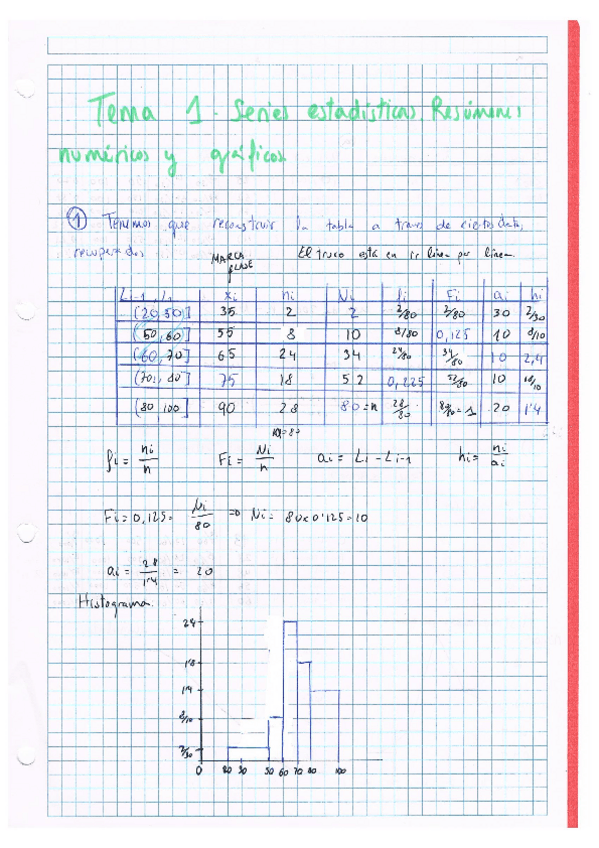 Tema 1. Series estadísticas. Resúmenes
numéricos y gráficos
① Tenemos que reconstruir la tabla a traves de ciertos datos
recuperados
El truco está en ir linea por linea.
MARCA
CLASE
Li-1, Li xi ni Ni fi Fi ai hi
(20,50] 35 2 2 2/80 2/80 30 2/30
(50,60] 55 8 10 8/80 0,125 10 8/10
(60,70] 65 24 34 24/80 34/80 10 2,4
(70, 80] 75 18 52 0,225 52/80 10 18/10
(80 100] 90 28 80=n 28/80 80/80=1 20 1'4
n=80
fi = ni/n Fi = Ni/n ai = Li - Li-1 hi = ni/ai
Fi = 0,125 = Ni/80 => Ni = 80x0'125=10
ai = 28/1'4 = 20
Histograma.
24
1'8
1'4
8/10
2/30
0 20 30 50 60 70 80 100